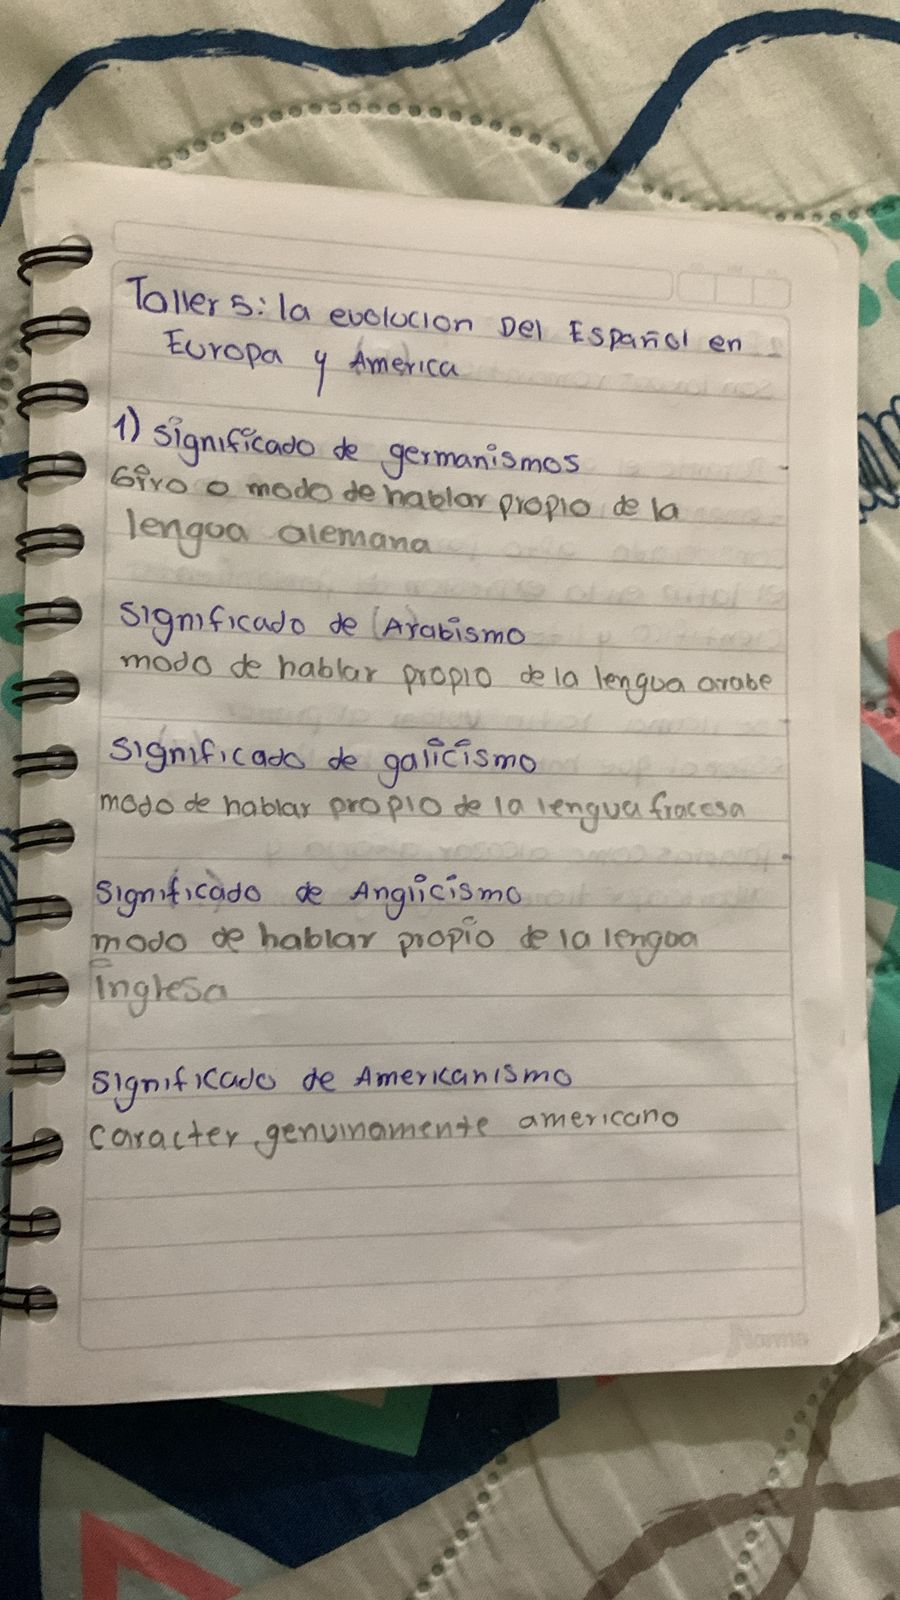 Taller 5: la evolucion Del Español en
Europa y America
1) significado de germanismos
Giro o modo de hablar propio de la
lengua alemana
significado de Arabismo
modo de hablar propio de la lengua arabe
significado de galicismo
modo de hablar propio de la lengua fracesa
significado de Anglicismo
modo de hablar propio de la lengua
inglesa
significado de Americanismo
caracter genuinamente americano
Norma